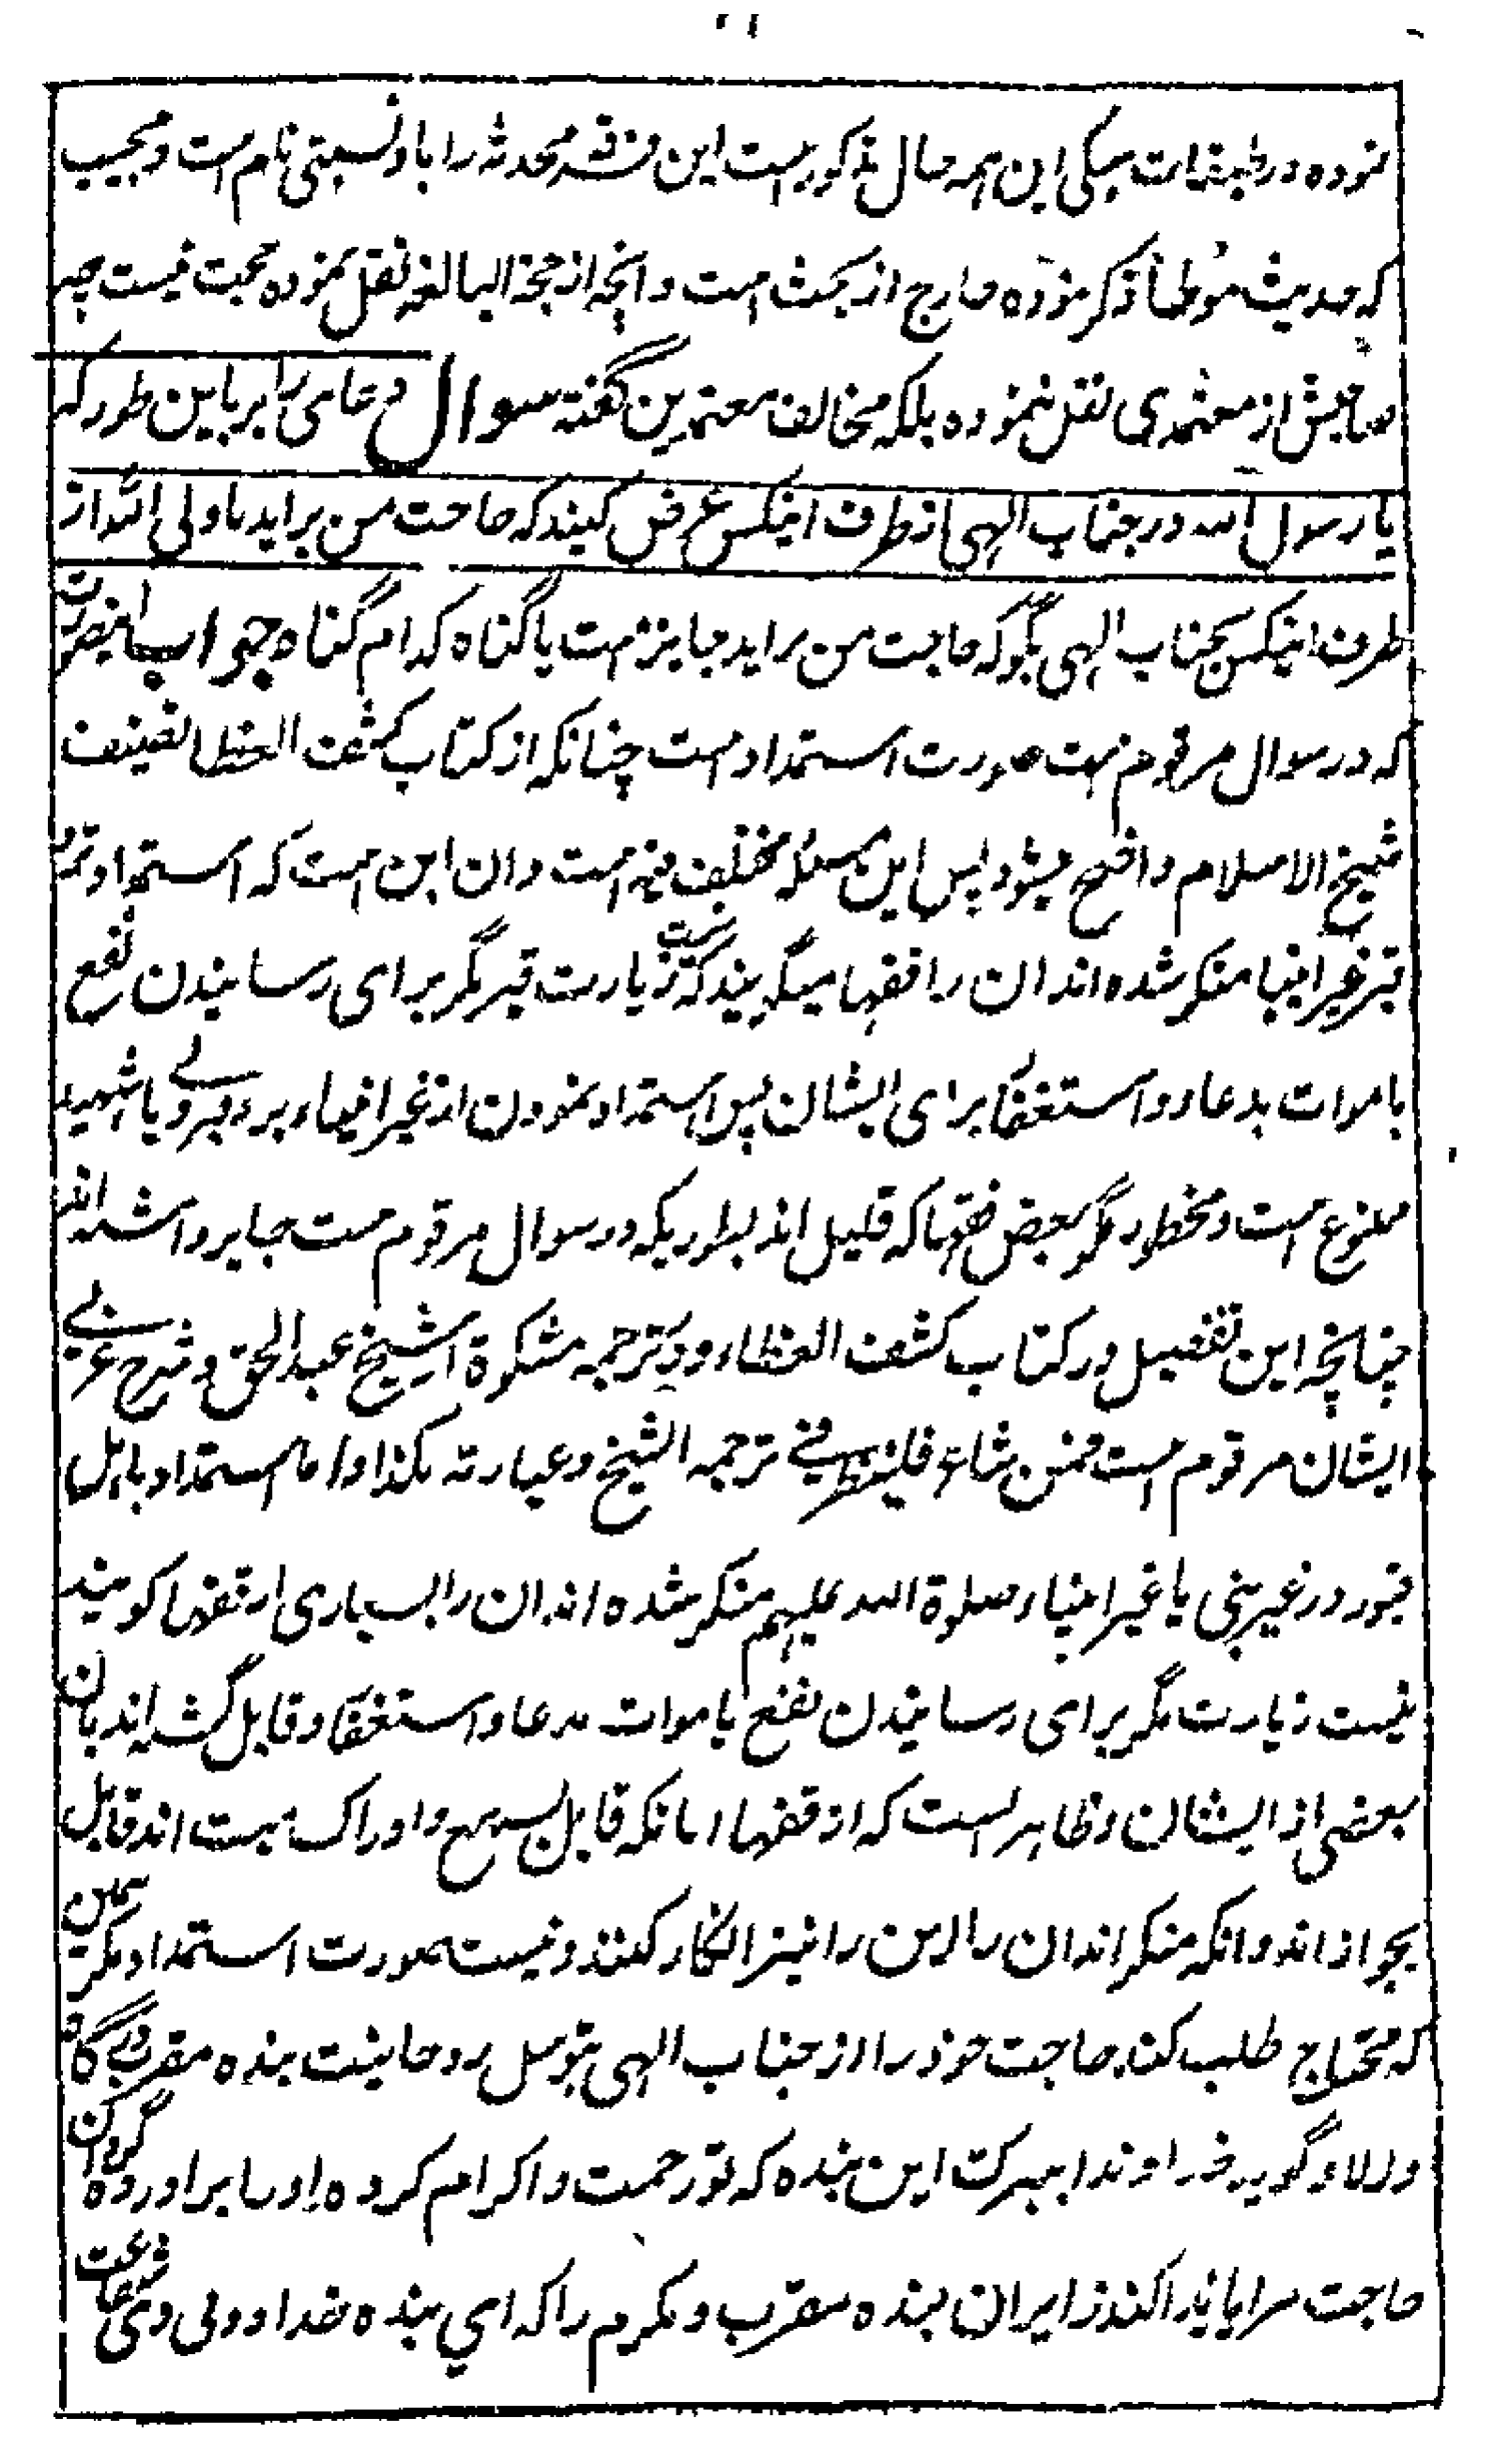 نموده در طبقات سبکی این همه حال مذکور است این فرقه محدثه را با او نسبتی تام است و مجیب
که حدیث موطأ ذکر نموده خارج از بحث است و آنچه از حجة البالغه نقل نموده حجت نیست چه
صاحبش از معتمدی نقل ننموده بلکه مخالف معتمدین گفته سوال دعای برابر باین طور که
یا رسول الله در جناب الهی از طرف اینکس عرض کنید که حاجت من براید یا ولی الله از
طرف اینکس بجناب الهی بگو که حاجت من براید جایز است یا گناه کدام گناه جواب اینصورت
که در سوال مرقوم است صورت استمداد است چنانکه از کتاب کشف الغطا تصنیف
شیخ الاسلام واضح میشود پس این مسئله مختلف فیه است و ان این است که استمداد
قبر غیر انبیا منکر شده اند ان را فقها میگویند که نیست زیارت قبر مگر برای رسانیدن نفع
باموات بدعا و استغفار برای ایشان پس استمداد نمودن از غیر انبیاء بر قبر ولی یا شهید
ممنوع است و محظور مگر بعض فقها که قلیل اند بطوریکه در سوال مرقوم است جایز داشته اند
چنانچه این تفصیل در کتاب کشف الغطاء و در ترجمه مشکوة از شیخ عبد الحق و شرح عربی
ایشان مرقوم است فمن شاء فلینظر فی ترجمه الشیخ و عبارته هکذا و اما استمداد باهل
قبور در غیر نبی یا غیر انبیاء صلوة الله علیهم منکر شده اند ان را بسیاری از فقها گویند
نیست زیارت مگر برای رسانیدن نفع باموات بدعا و استغفار و قایل گشته اند بان
بعضی از ایشان و ظاهر است که از فقها انانکه قایل بسمع و ادراک میت اند قایل
بجواز اند و انکه منکر اند ان را این را نیز انکار کنند و نیست صورت استمداد مگر همین
که محتاج طلب کند حاجت خود را از جناب الهی بتوسل روحانیت بنده مقرب درگاه
والا و گوید خداوندا ببرکت این بنده که تو رحمت و اکرام کرده او را براورده گردان
حاجت مرا یا ندا کند زایران بنده مقرب و مکرم را که ای بنده خدا و ولی وی شفاعت